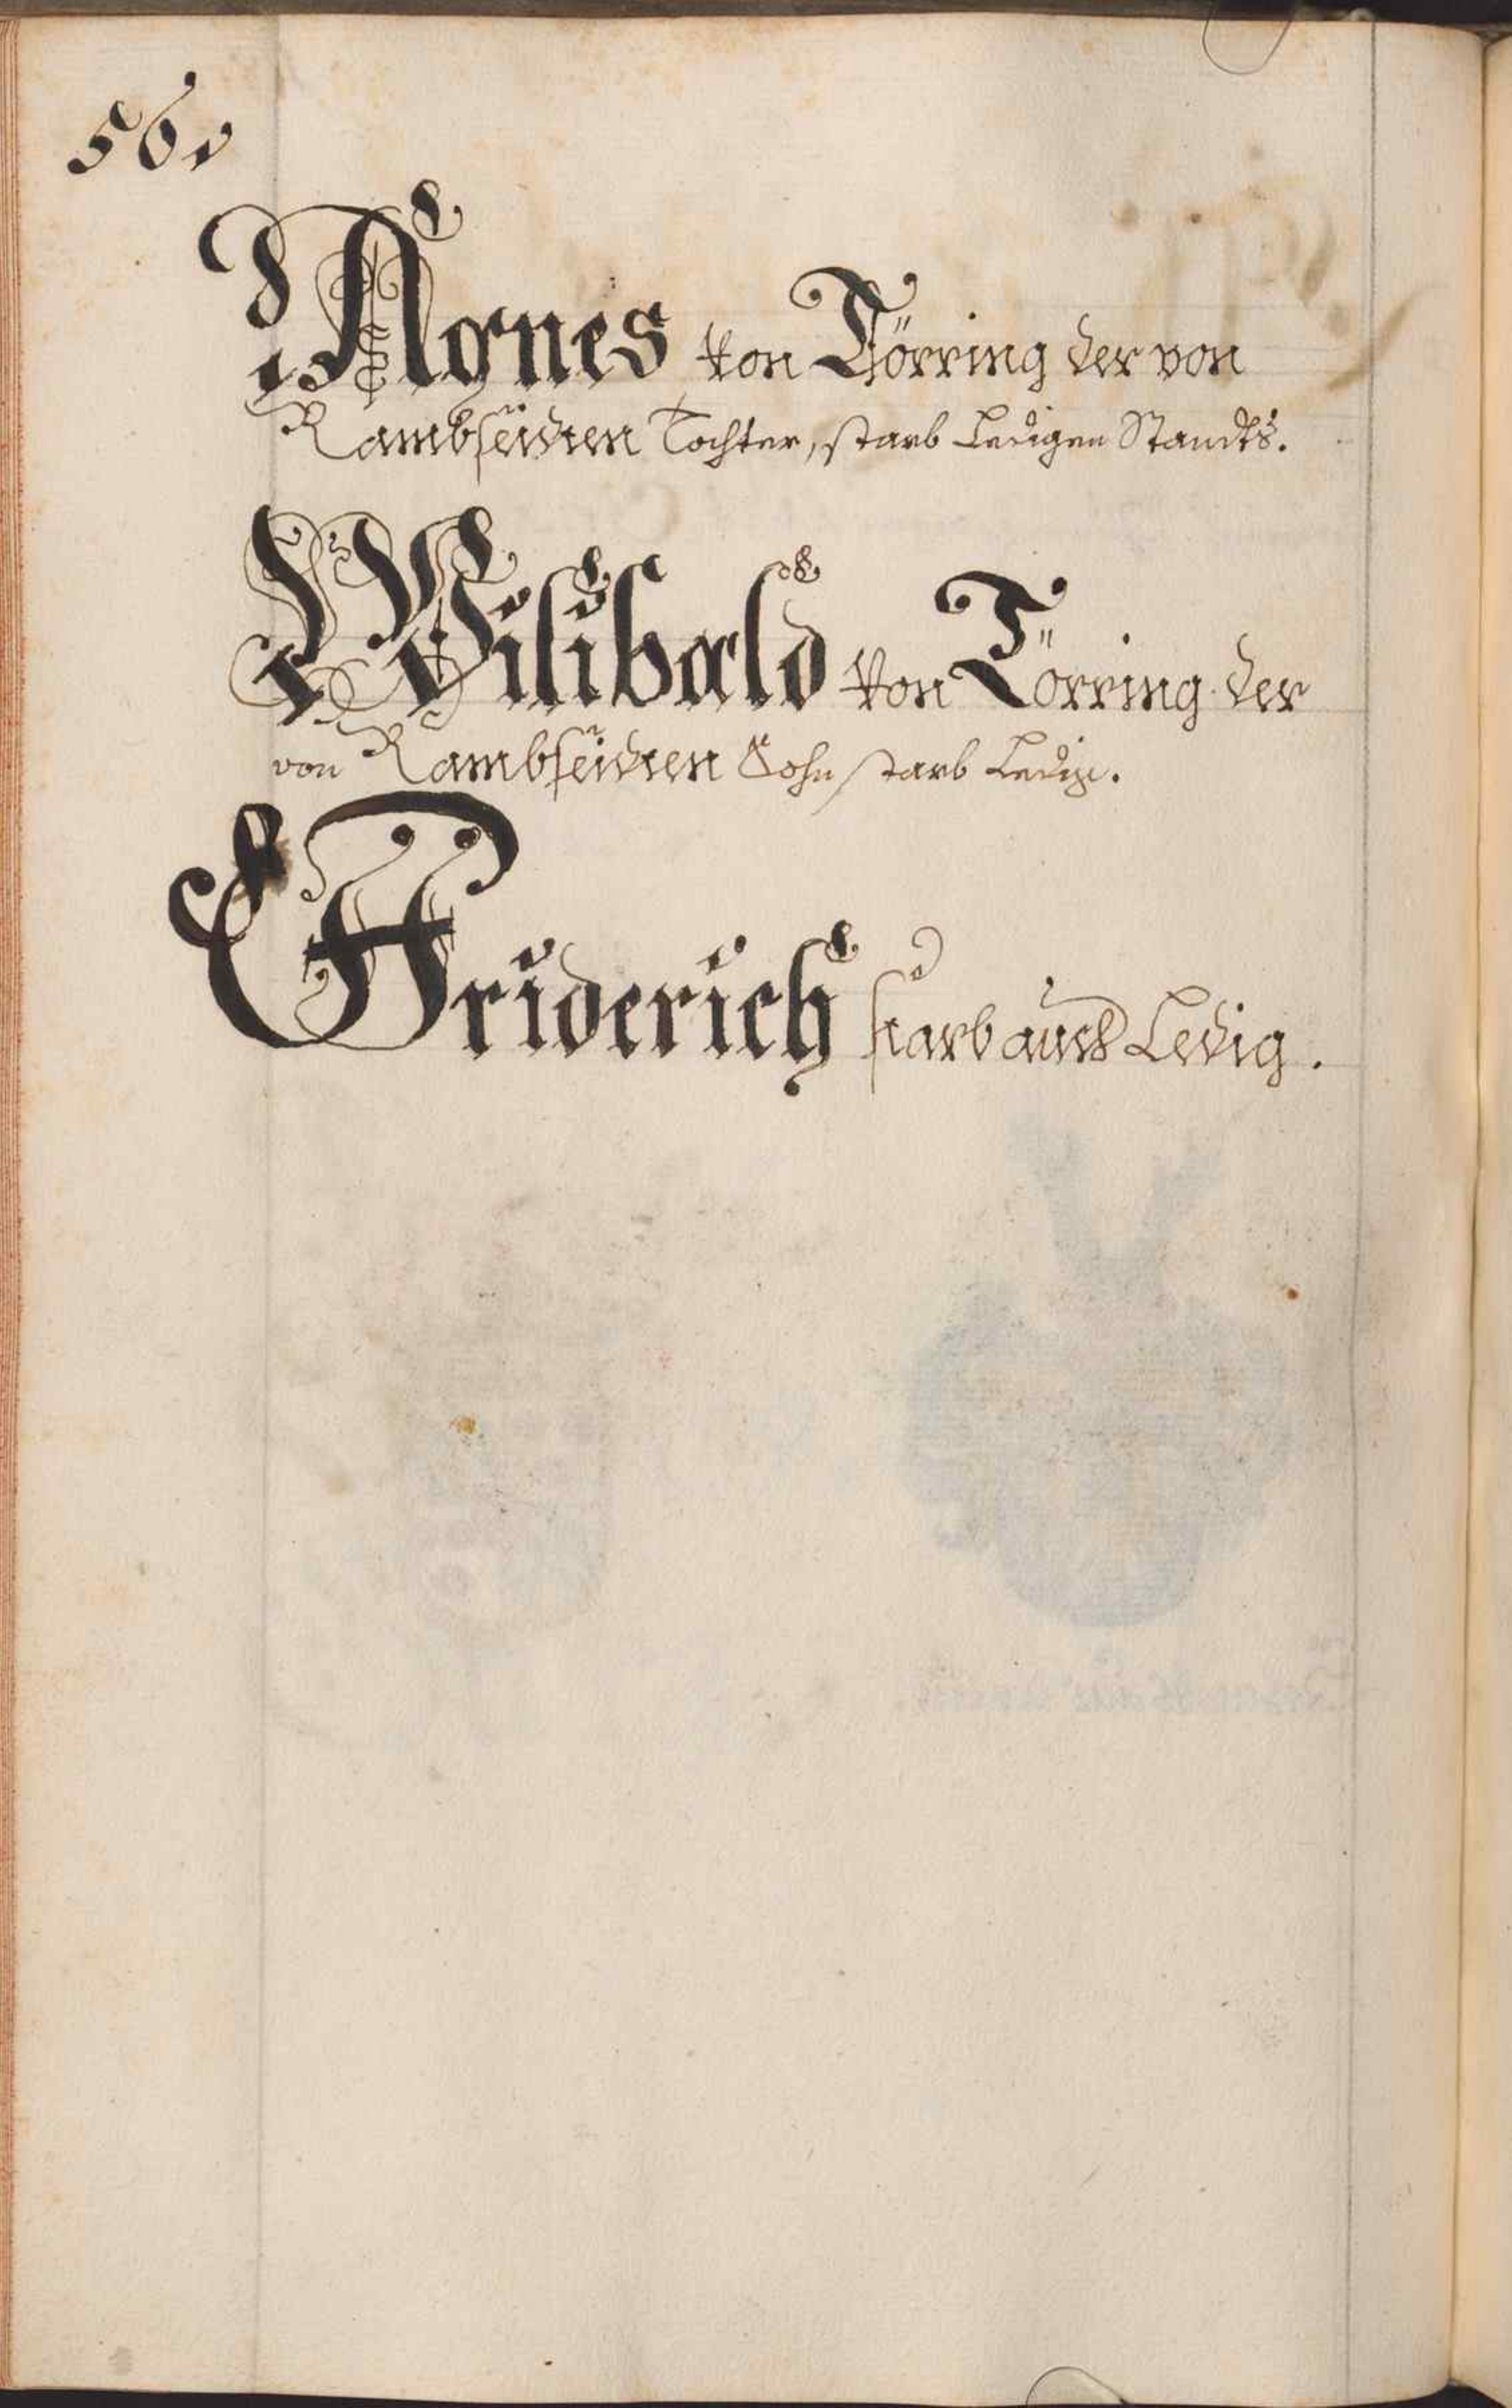 56
Agnes von Törring der von
Rambseiden Tochter, starb Ledigen Standts.
Wilibald von Törring der
von Rambseiden Sohn starb Ledig.
Friderich starb auch Ledig.